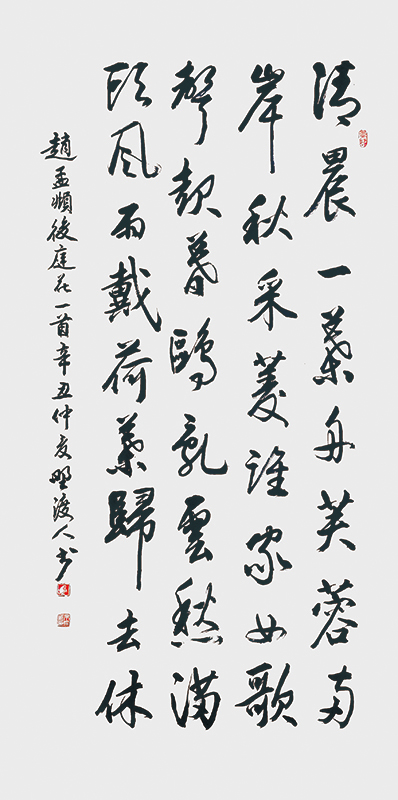 清晨一葉舟芙蓉两
岸秋采菱誰家女歌
聲起暮鷗亂雲愁满
頭風雨戴荷葉歸去休
趙孟頫後庭花一首辛丑仲夏野渡人书